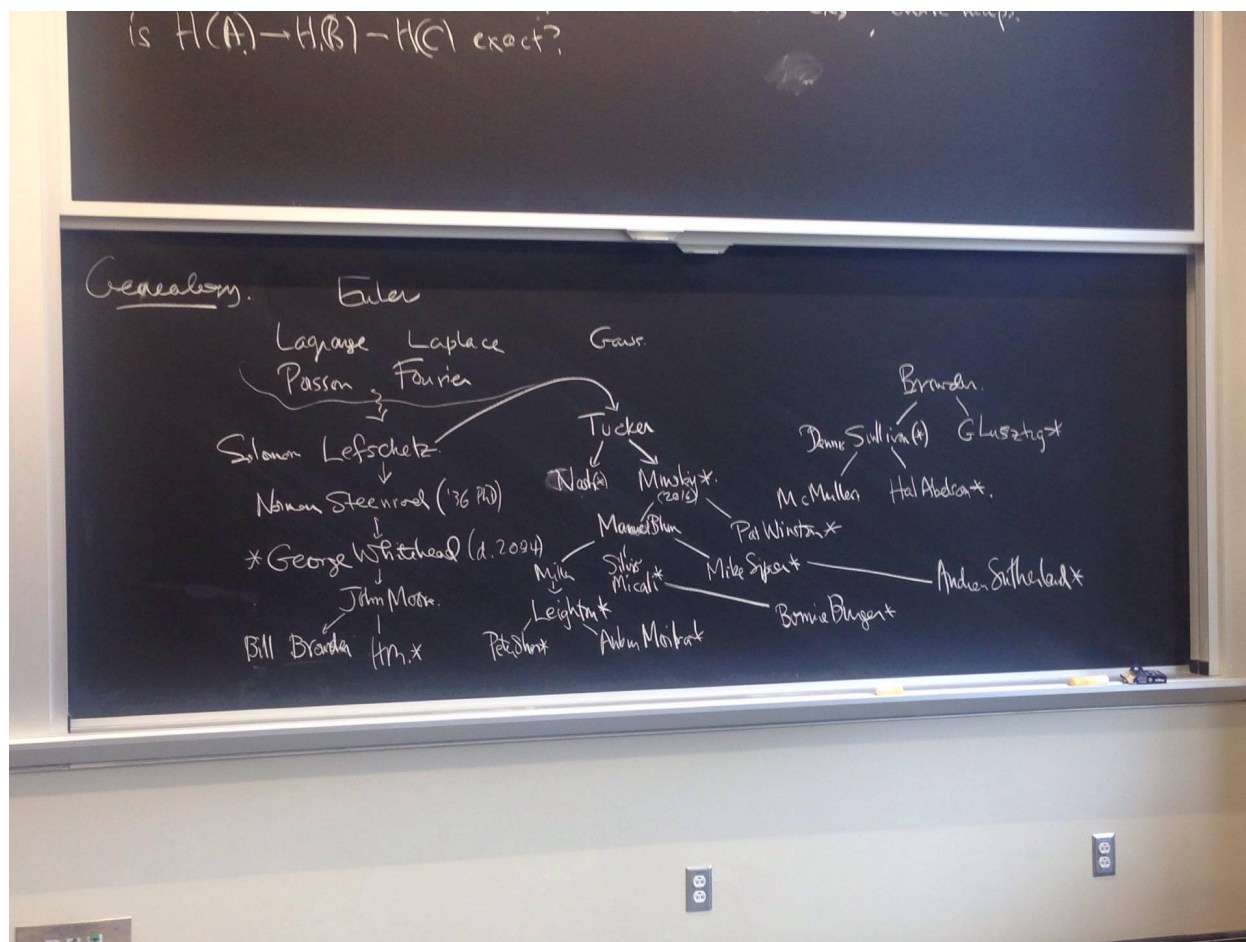 is H(A) → H(B) – H(C) exact?
Genealogy.
Euler
Lagrange Laplace Gauss
Poisson Fourier
Solomon Lefschetz
Norman Steenrod ('36 PhD)
*George Whitehead (d. 2004)
John Moore.
Bill Browder HM.*
Tucker
Nash(*) Minsky*.
(2016)
Manuel Blum
Pat Winston*
Miller Silvio Micali* Mike Sipser*
Andrew Sutherland*
Leighton*
Bonnie Berger*
Peter Shor* Ankur Moitra*
Browder.
Dennis Sullivan(*) G Lusztig*
McMullen Hal Abelson*.